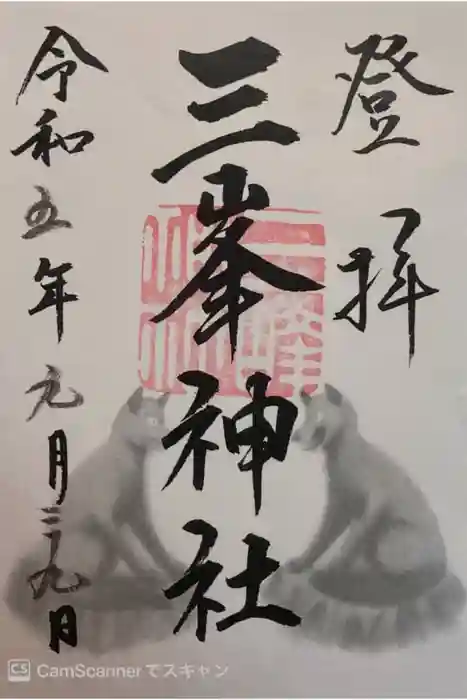 登拝
三峯神社
令和五年元月二十九日
三峰神社
CS CamScannerでスキャン